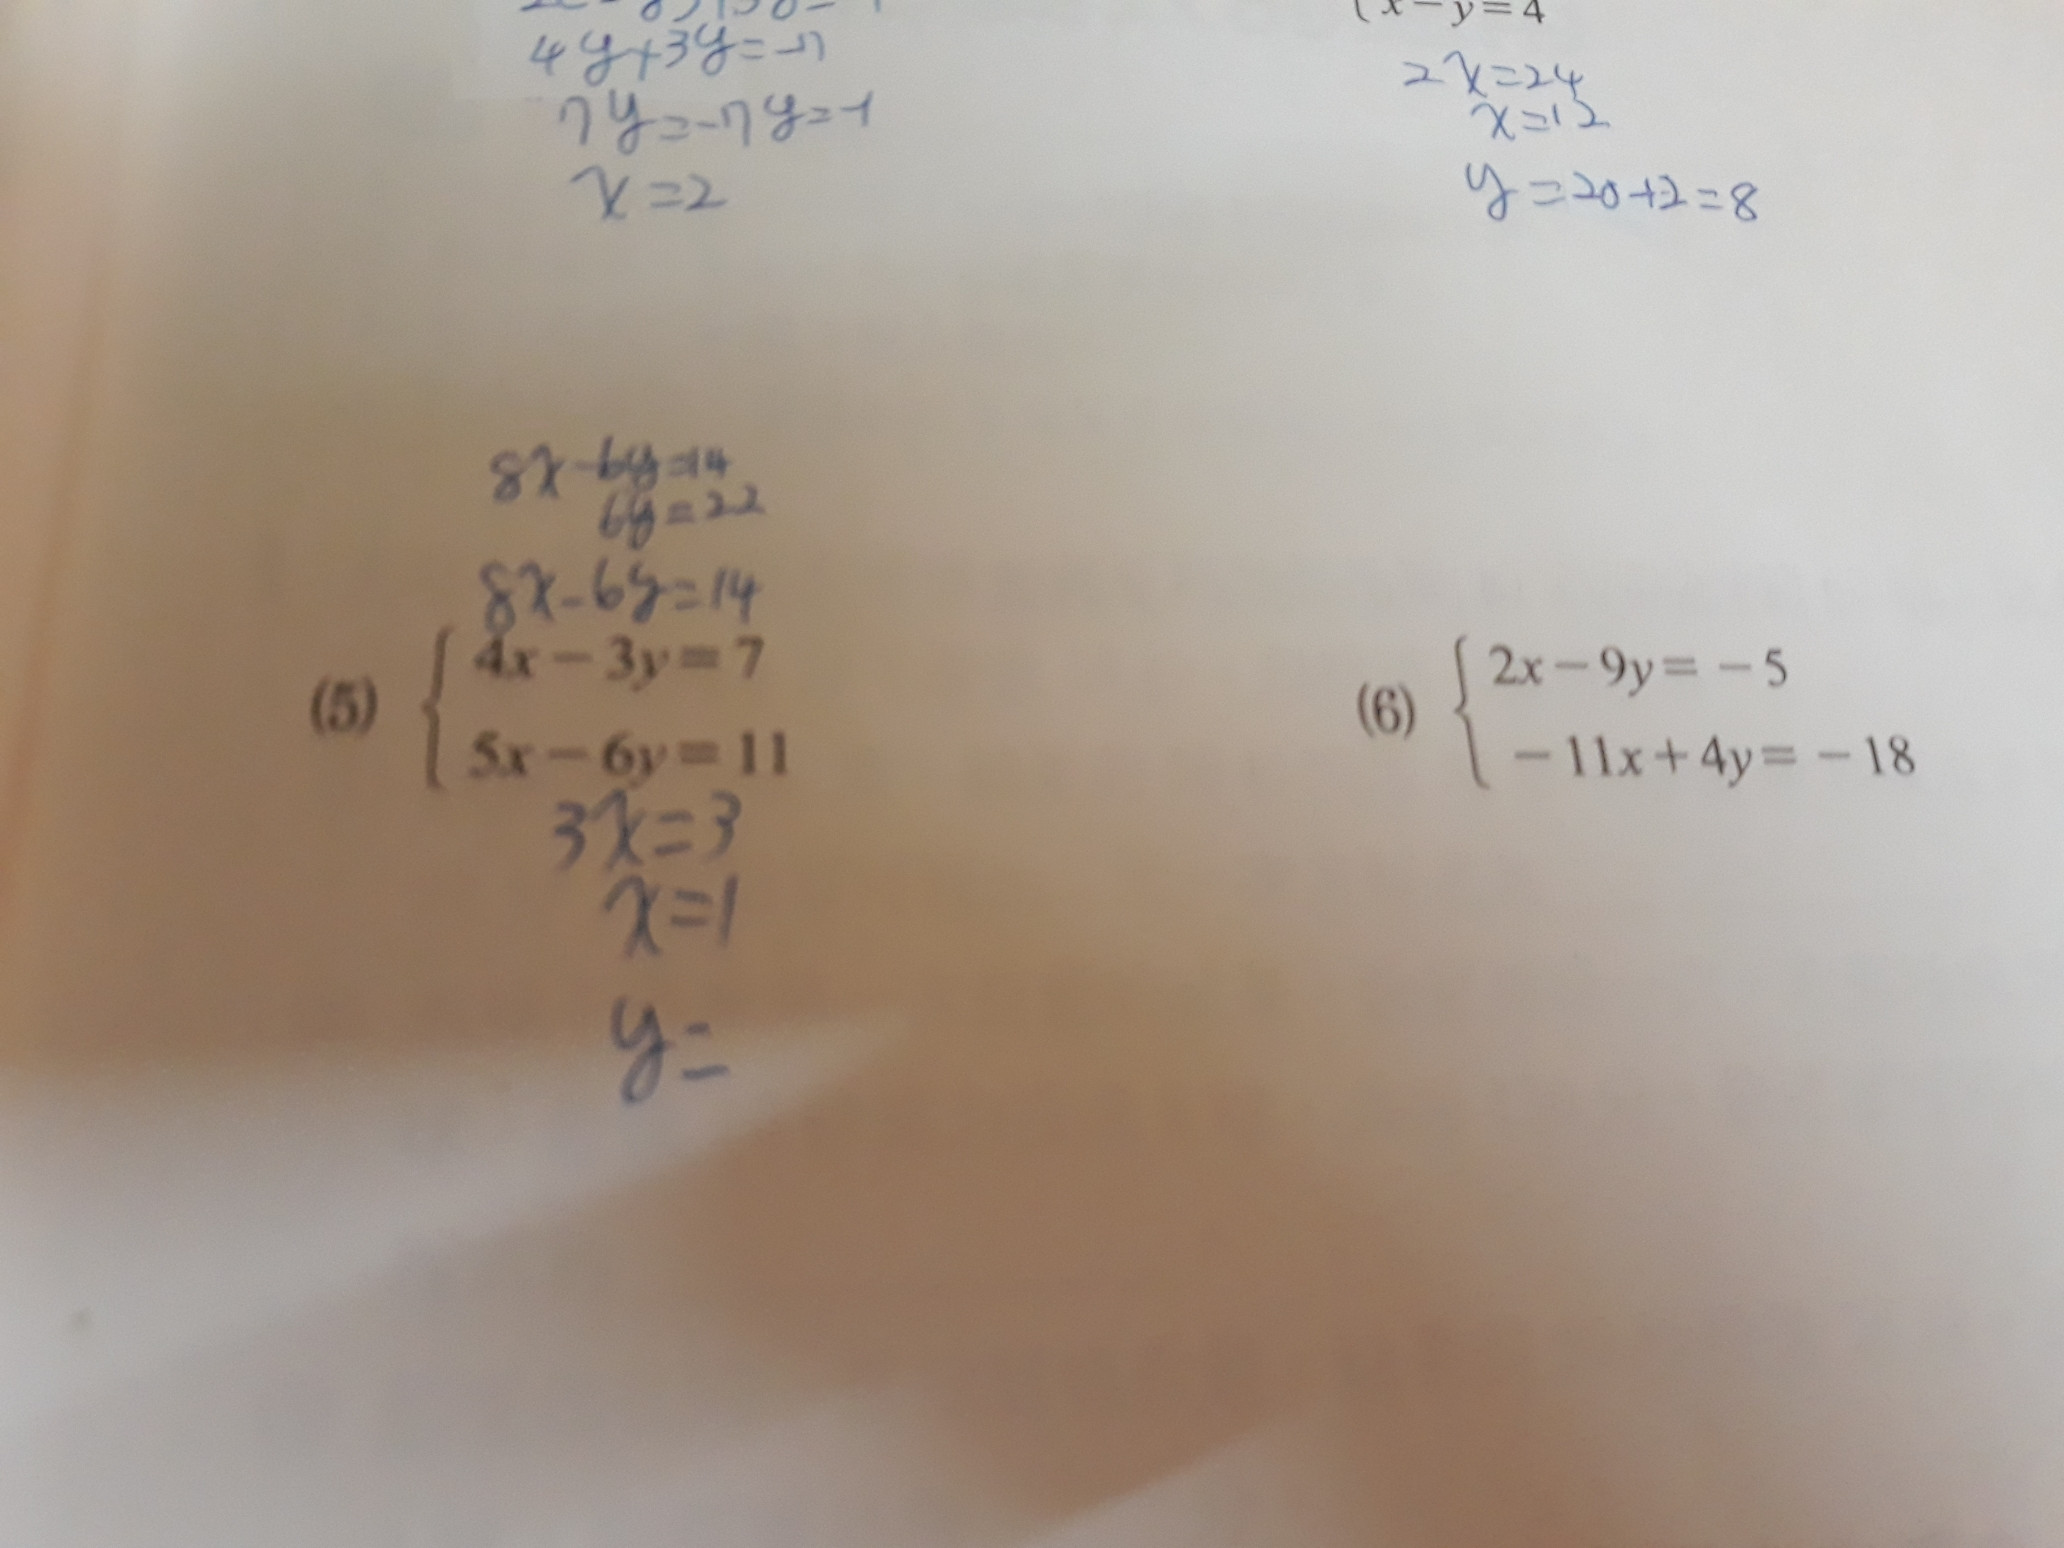 4y+3y=-7
7y=-7 y=-1
x=2
x-y=4
2x=24
x=12
y=20+2=8
8x-6y=14
6y=22
8x-6y=14
(5) { 4x-3y=7
5x-6y=11
3x=3
x=1
y=
(6) { 2x-9y=-5
-11x+4y=-18